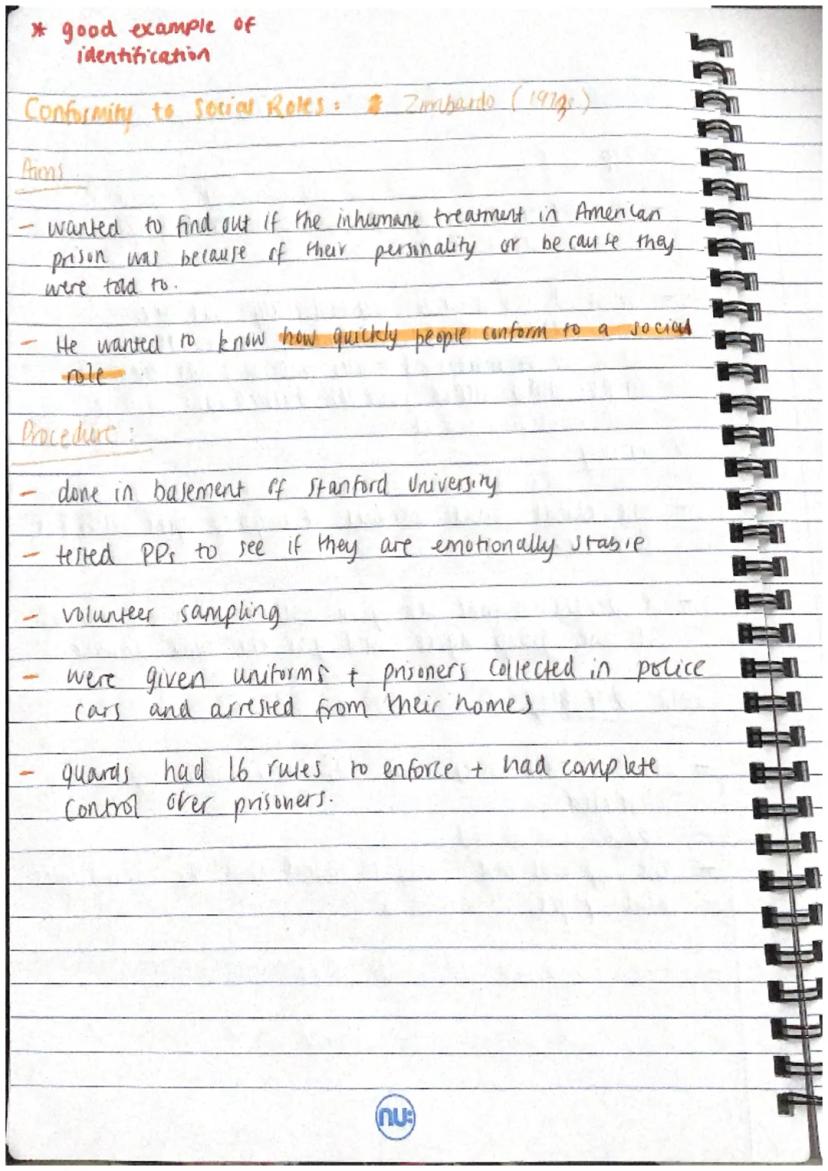 * good example of
identification
Conformity to Social Roles: Zimbardo (1973)
Aims
- wanted to find out if the inhumane treatment in American
prison was because of their personality or because they
were told to.
- He wanted to know how quickly people conform to a social
role
Procedure:
- done in basement of Stanford University
- tested PPs to see if they are emotionally stable
- volunteer sampling
- were given uniforms + prisoners collected in police
cars and arrested from their homes
- guards had 16 rules to enforce + had complete
control over prisoners.
nu: